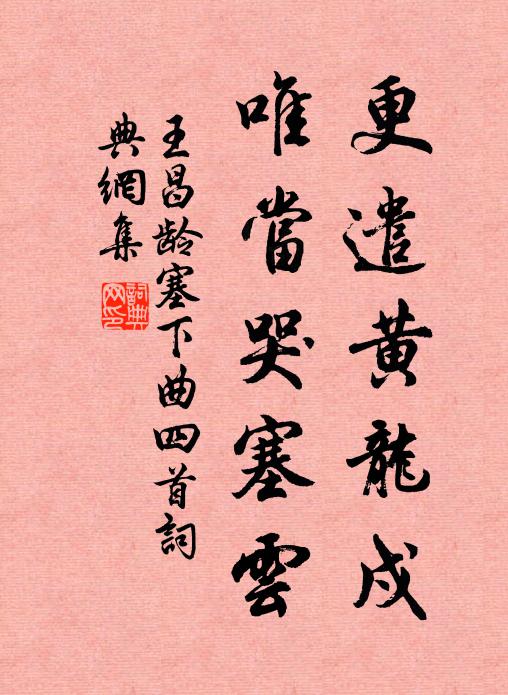 更遣黄龍戍
唯當哭塞雲
王昌龄塞下曲四首詞
典網集
詞典网印